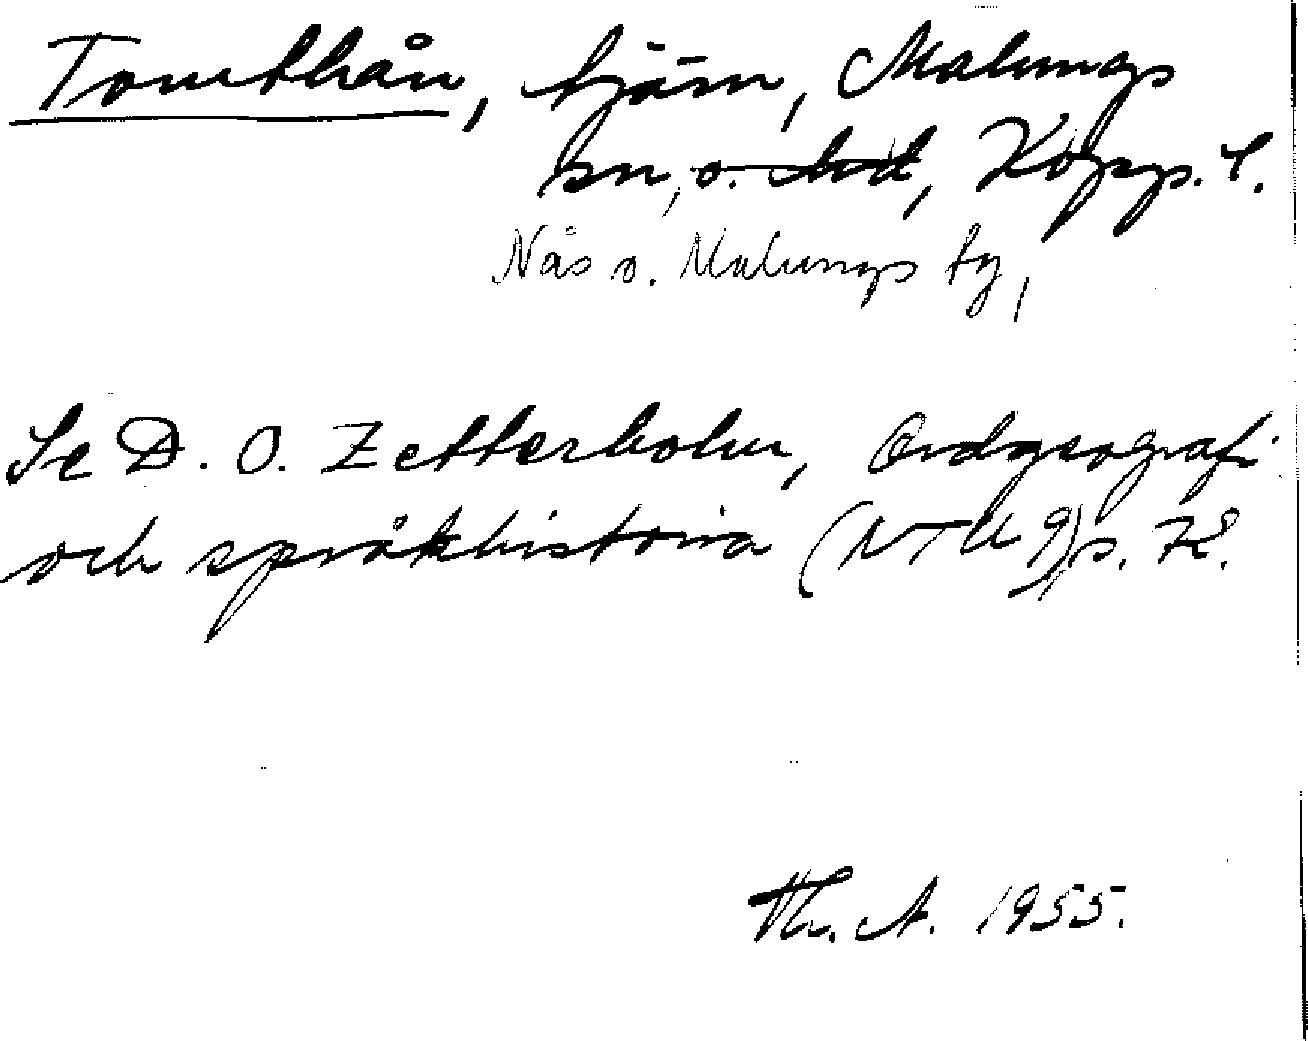 Tomthån, tjärn, Malungs
sn, o. hd, Kopp. l.
Nås o. Malungs fg,
Se D. O. Zetterholm, Ordgeografi
och språkhistoria (NTU 9) s. 78.
Th. A. 1955.